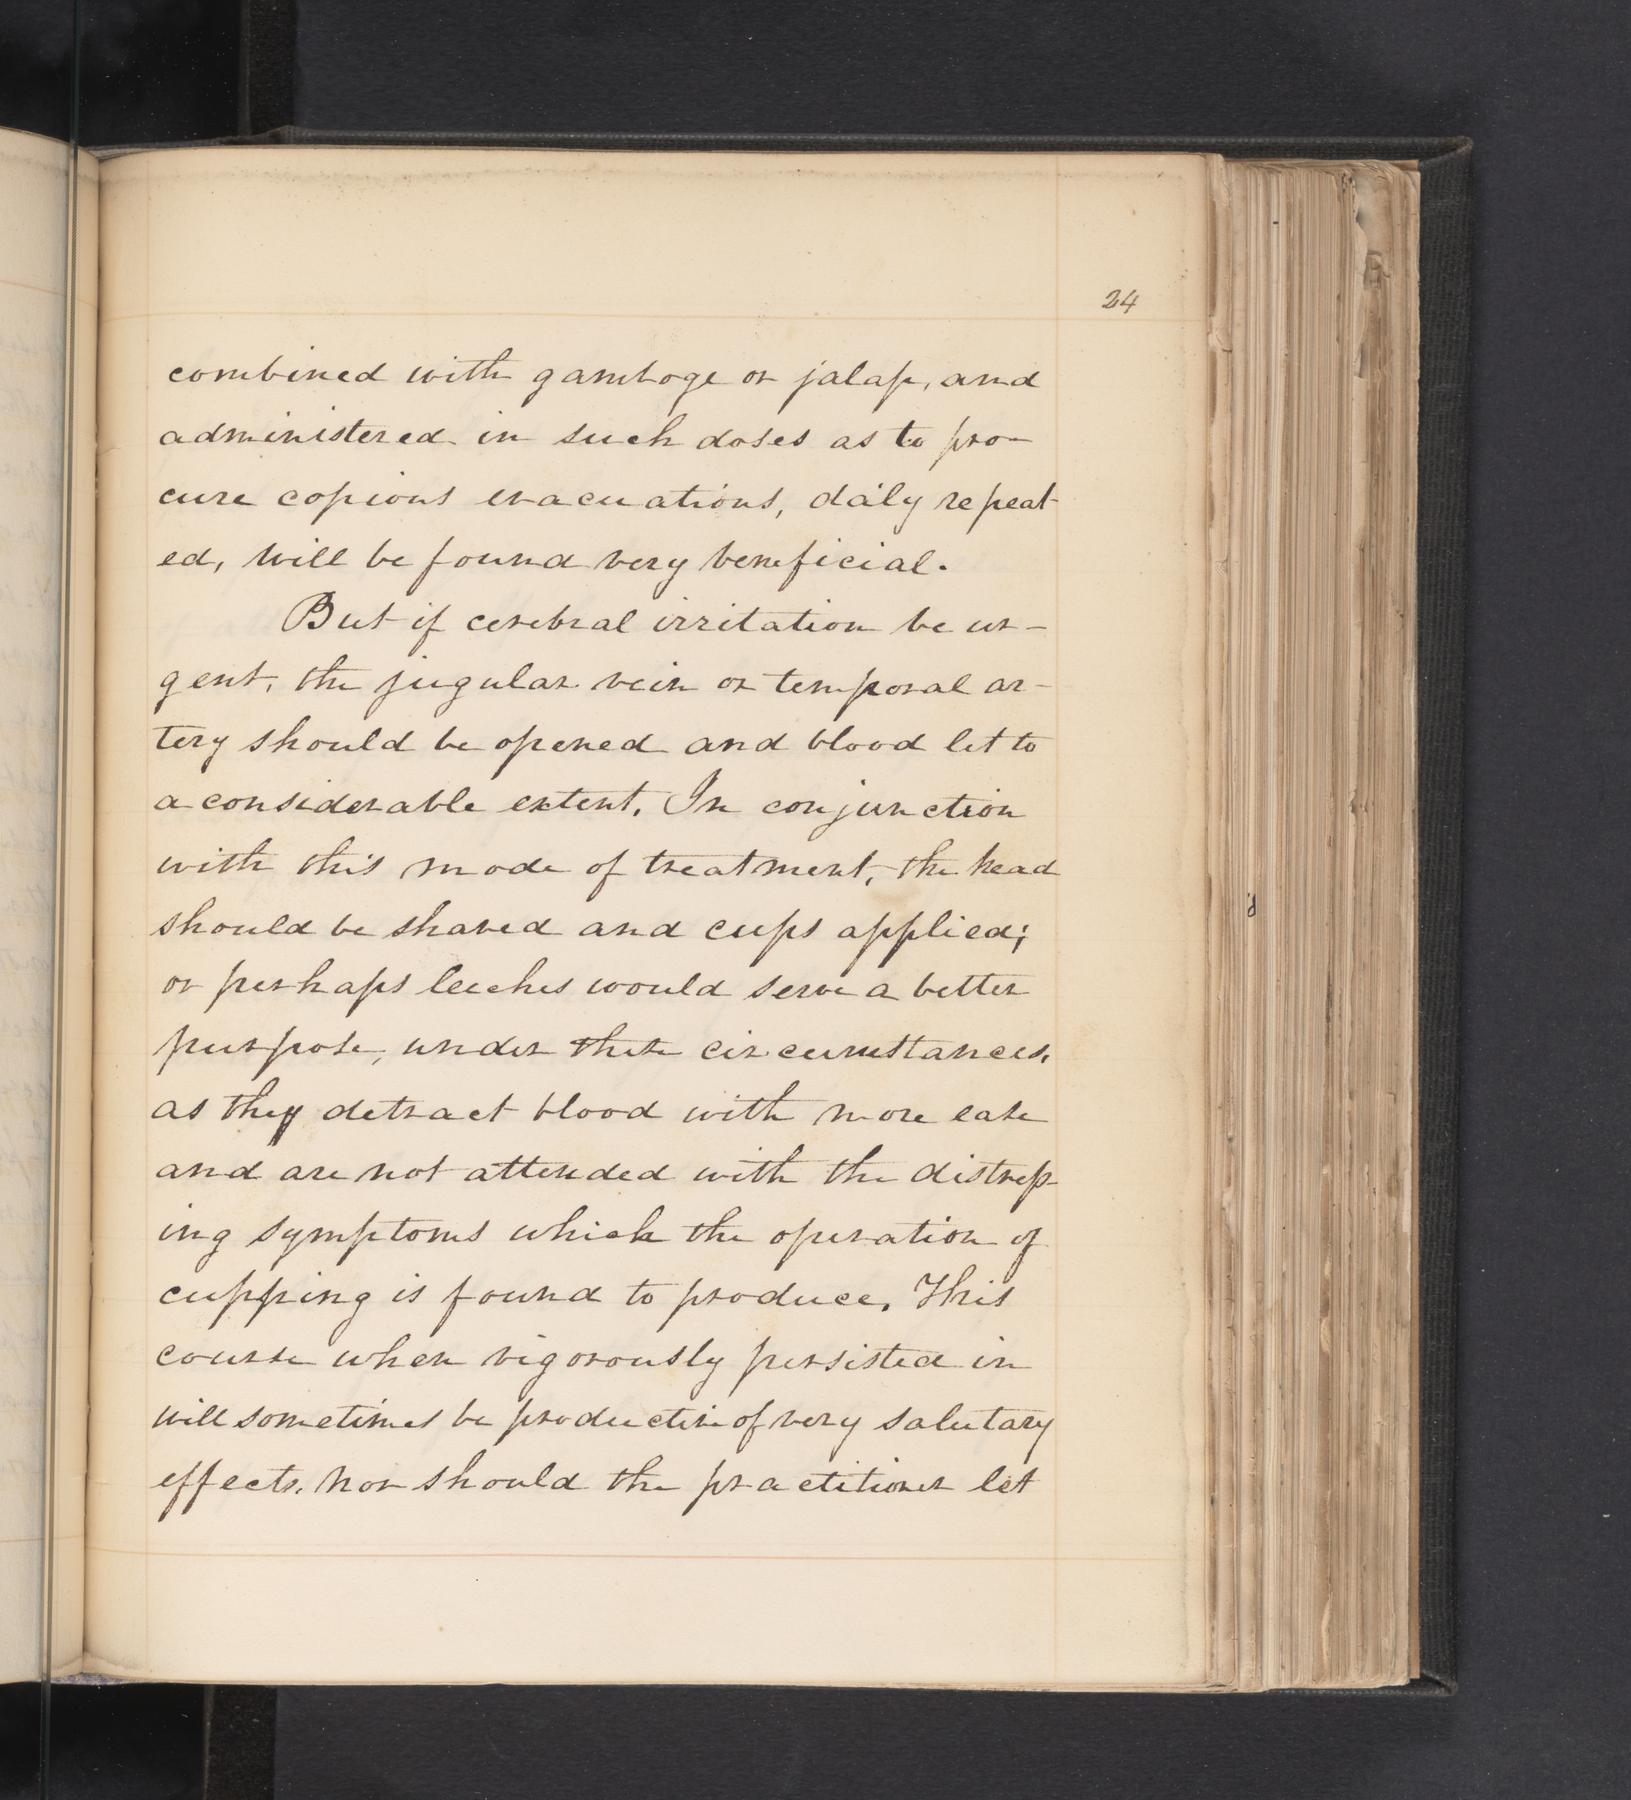 24
combined with gamboge or jalap, and
administered in such doses as to pro-
cure copious evacuations, daily repeat-
ed, will be found very beneficial.
But if cerebral irritation be ur-
gent, the jugular vein or temporal ar-
tery should be opened and blood let to
a considerable extent. In conjunction
with this mode of treatment, the head
should be shaved and cups applied;
or perhaps leeches would serve a better
purpose, under these circumstances,
as they detract blood with more ease
and are not attended with the distress-
ing symptoms which the operation of
cupping is found to produce. This
course when vigorously persisted in
will sometimes be productive of very salutary
effects. Nor should the practitioner let